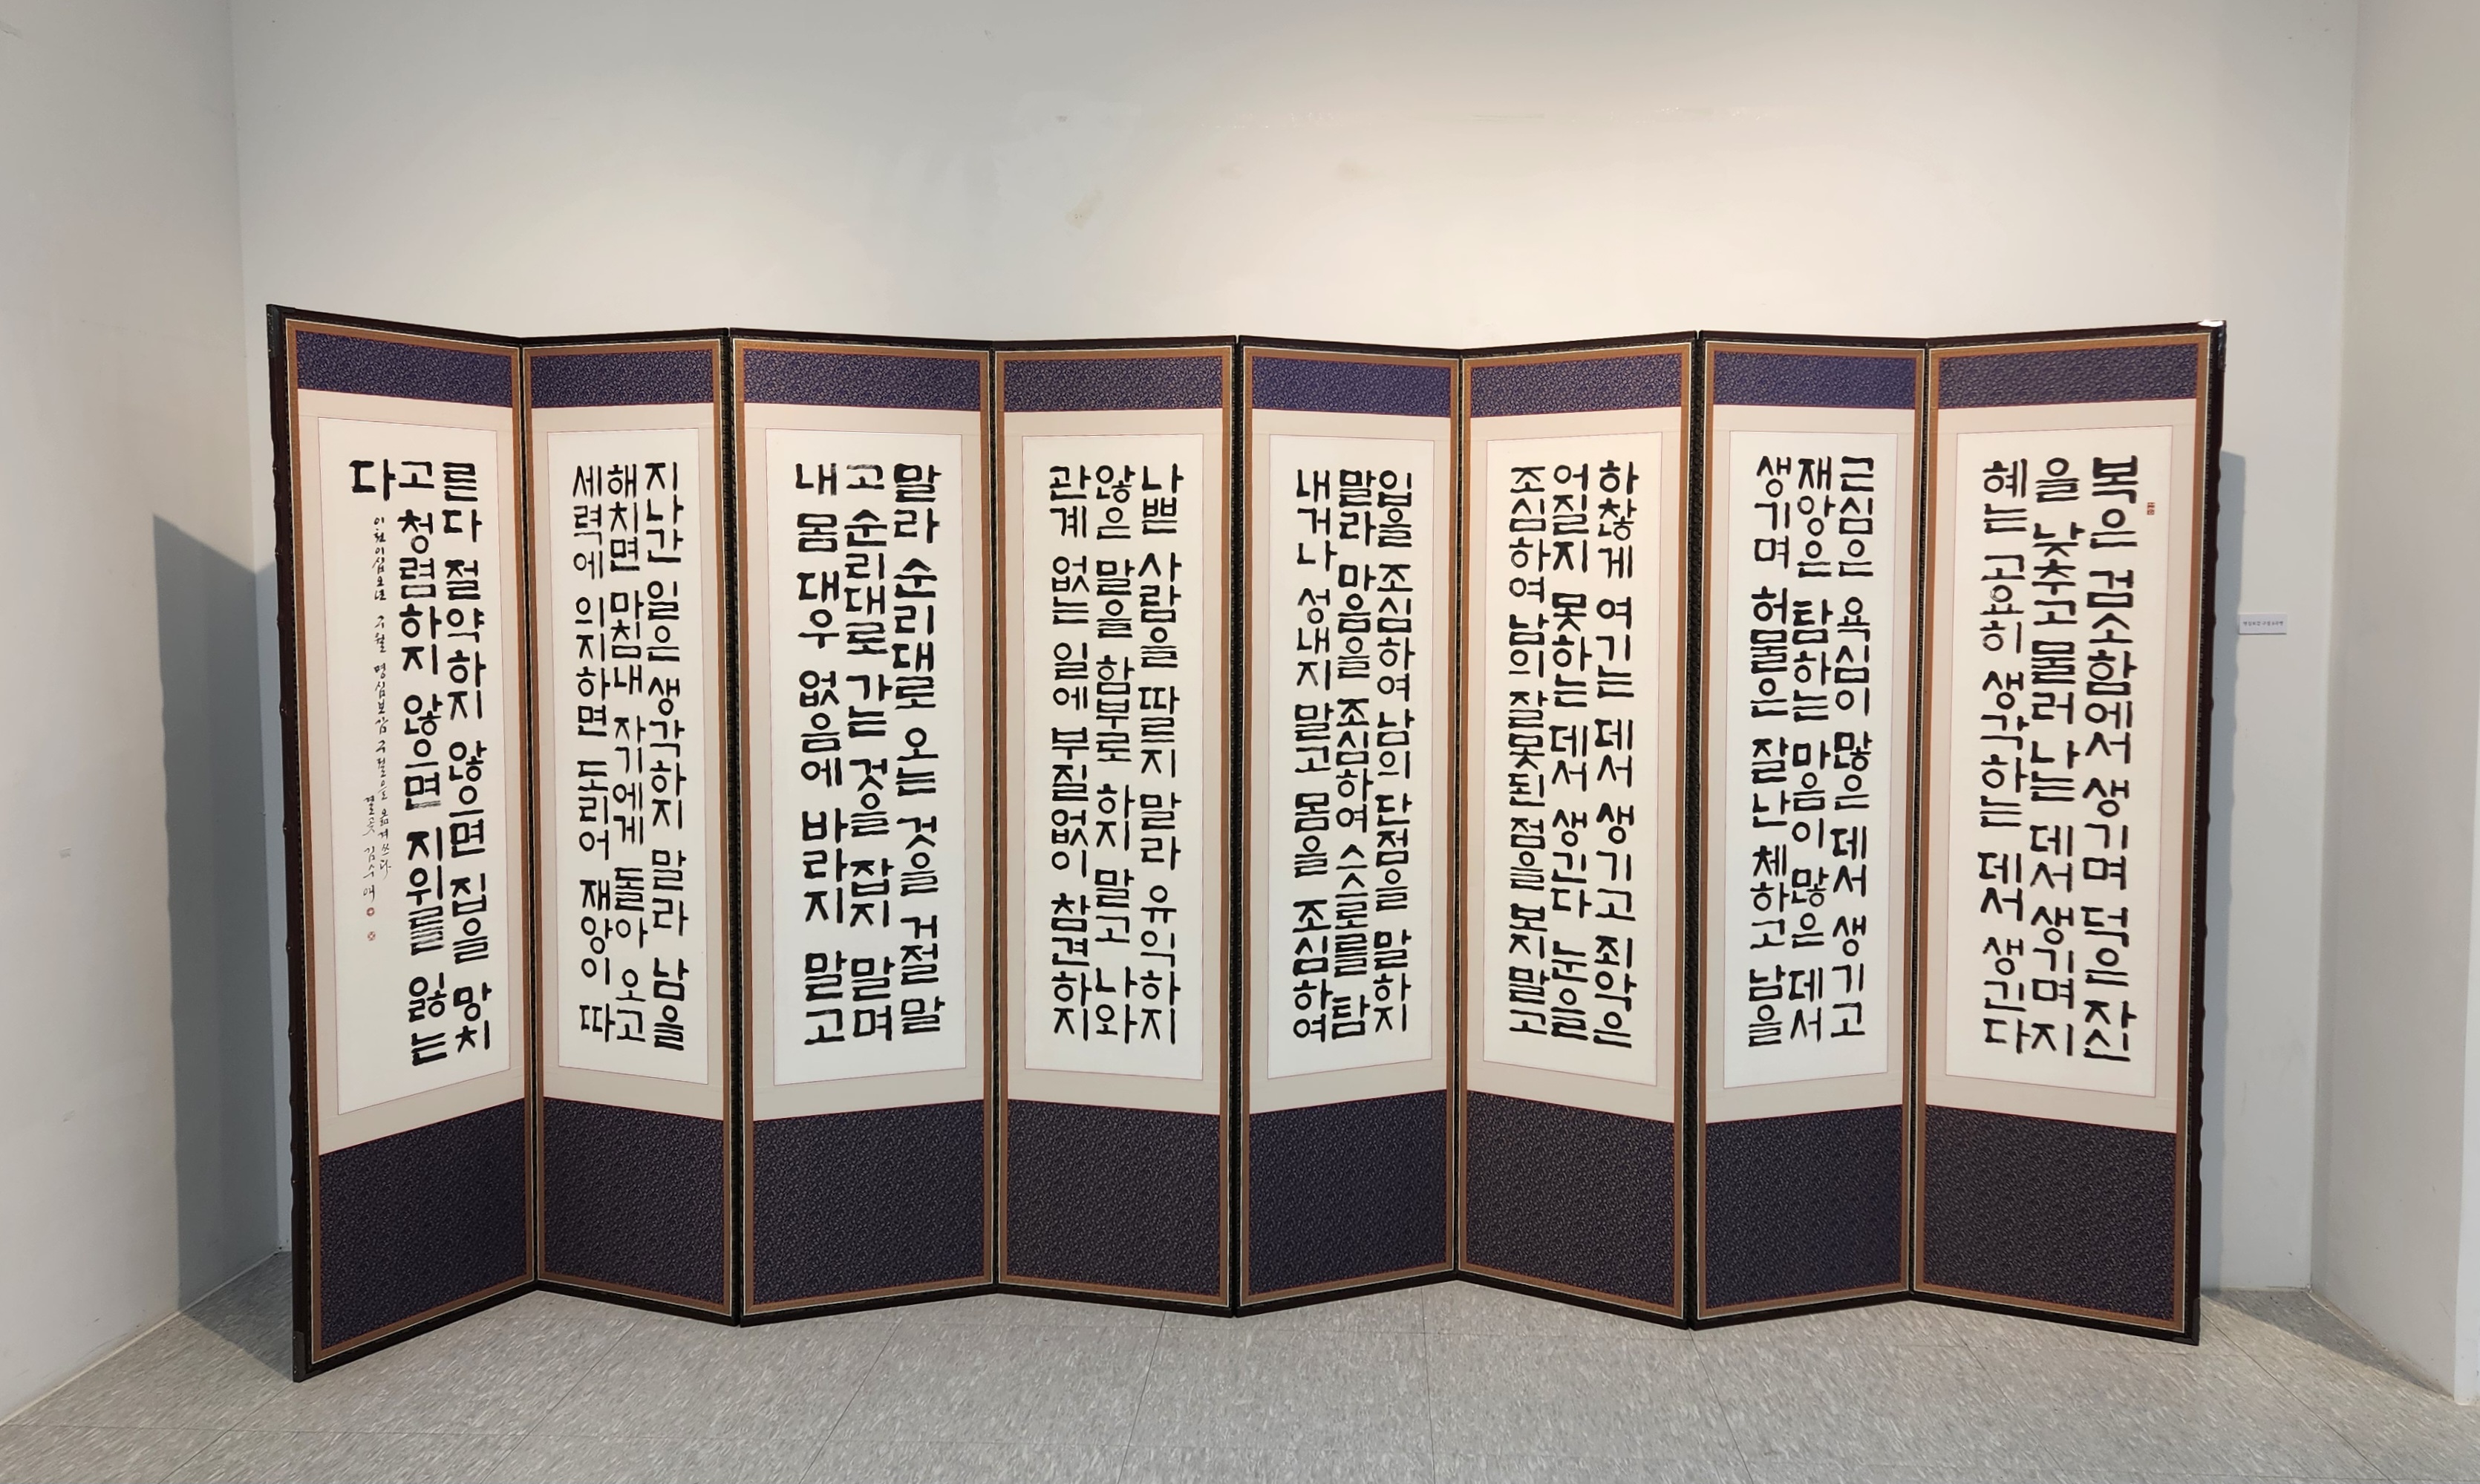 복은 검소함에서 생기며 덕은 자신
을 낮추고 물러 나는 데서 생기며 지
혜는 공요히 생각하는 데서 생긴다
근심은 욕심이 많은 데서 생기고
재앙은 탐하는 마음이 많은 데서
생기며 허물은 잘난 체하고 남을
하찮게 여기는 데서 생기고 죄악은
어질지 못하는 데서 생긴다 눈을
조심하여 남의 잘못된 점을 보지 말고
입을 조심하여 남의 단점을 말하지
말라 마음을 조심하여 스스로를 탐
내거나 성내지 말고 몸을 조심하여
나쁜 사람을 따르지 말라 유익하지
않은 말을 함부로 하지 말고 나와
관계 없는 일에 부질없이 참견하지
말라 순리대로 오는 것을 거절 말
고 순리대로 가는 것을 잡지 말며
내 몸 대우 없음에 바라지 말고
지나간 일은 생각하지 말라 남을
해치면 마침내 자기에게 돌아 오고
세력에 의지하면 도리어 재앙이 따
른다 절약하지 않으면 집을 망치
고 청렴하지 않으면 지위를 잃는
다
이천이십오년 구월 명심보감 구절으로 옮겨 쓰다
김수애